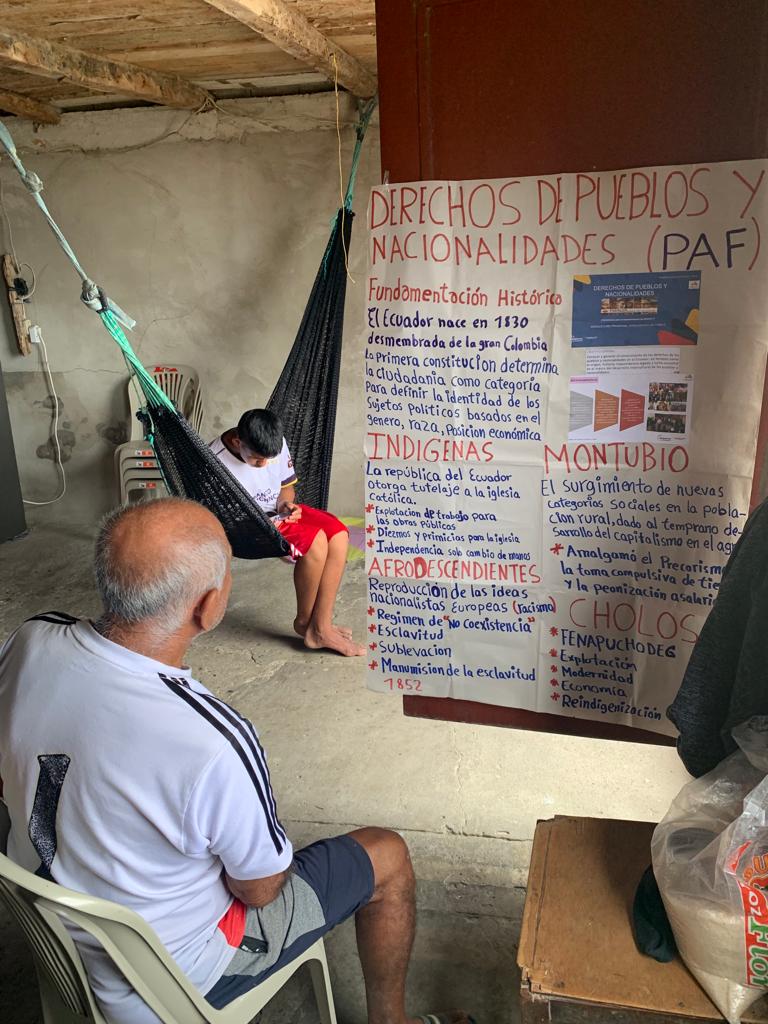 DERECHOS DE PUEBLOS Y
NACIONALIDADES (PAF)
Fundamentación Histórico
El Ecuador nace en 1830
desmembrada de la gran Colombia
La Primera constitucion determina
la ciudadania como categoria
Para definir la identidad de los
Sujetos Politicos basados en el
genero, raza, Posicion económica
INDIGENAS
La república del Ecuador
otorga tutelaje a la iglesia
católica.
* Explotacion de trabajo para
las obras Públicas
* Diezmos y primicias para la iglesia
* Independencia solo cambio de manos
AFRODESCENDIENTES
Reproducción de las ideas
nacionalistas Europeas (racismo)
* Regimen de "No coexistencia"
* Esclavitud
* Sublevacion
* Manumision de la esclavitud
1852
DERECHOS DE PUEBLOS Y
NACIONALIDADES
MONTUBIO
El surgimiento de nuevas
categorias sociales en la pobla-
cion rural, dado al temprano de-
sarrollo del capitalismo en el agr
* Amalgamó el Precorismo
la toma compulsiva de tie
y la peonización asalari
CHOLOS
* FENAPUCHODEG
* Explotación
* Modernidad
* Economia
* Reindigenización
1
Flor